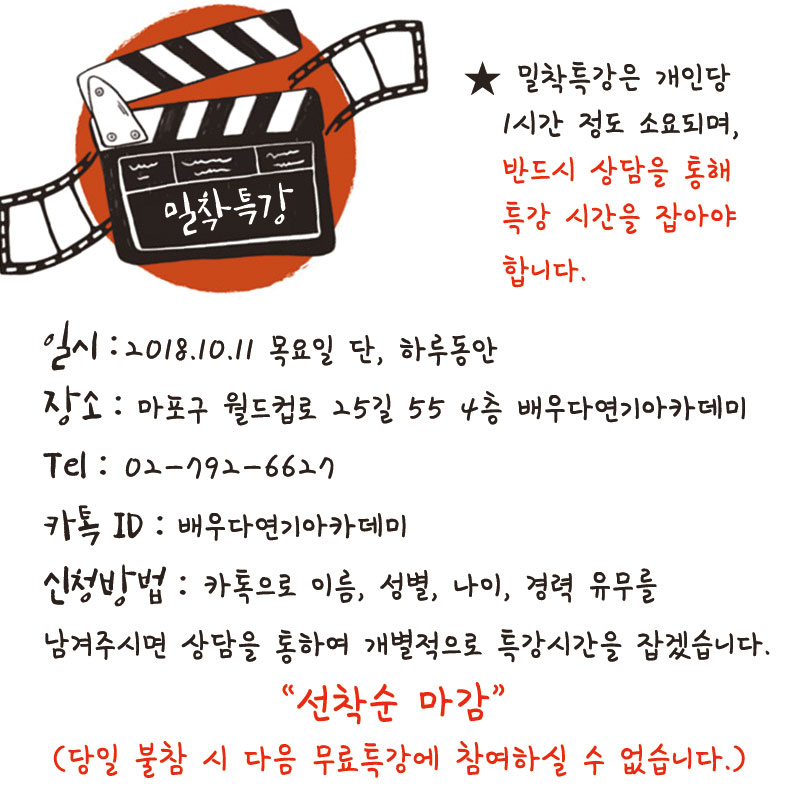 밀착특강
★ 밀착특강은 개인당
1시간 정도 소요되며,
반드시 상담을 통해
특강 시간을 잡아야
합니다.
일시 : 2018.10.11 목요일 단, 하루동안
장소 : 마포구 월드컵로 25길 55 4층 배우다연기아카데미
Tel : 02-792-6627
카톡 ID : 배우다연기아카데미
신청방법 : 카톡으로 이름, 성별, 나이, 경력 유무를
남겨주시면 상담을 통하여 개별적으로 특강시간을 잡겠습니다.
“선착순 마감”
(당일 불참 시 다음 무료특강에 참여하실 수 없습니다.)